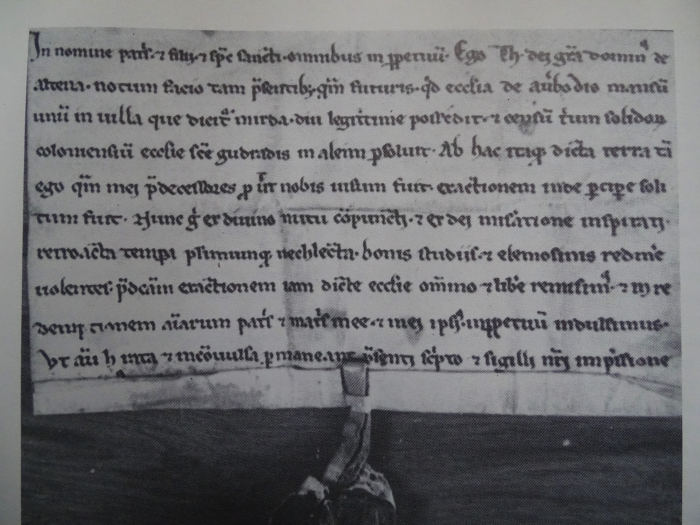 In nomine patͥs · ⁊ filii · ⁊ sp̅c sancti · omnibus in ꝑpetuū · Ego Th · dei gr̅a domin᷒ de
altena · notum facio tam p̅sentibꝫ · qͣm futuris · qd̅ ecclia de mansū
unū in uilla que dicit᷑ mirda · diu legittime possedit · ⁊ censū solidoꝝ
coloniensiū ecclie sc̅e gudradis in alem ꝑsoluit · Ab hac itaqꝫ dicta terra tā
ego qͣm mei p̅decessores ꝓ ut nobis uisum fuit · exactionem inde ꝑcipe soli
tum fuit · Nunc g̊ ex diuino nutu cōpuncti · ⁊ ex dei mis̅atione inspirati ·
retroacta tempa pessimumqꝫ neclecta · bonis studiis · ⁊ elemosinis redime
uolentes · p̅dcām exactionem iam dicte ecclie om̅ino ⁊ lib̅e remisim᷒ · ⁊ in re
demptionem aīarum patͥs ⁊ matͥs mee · ⁊ mei ipsi᷒ · inꝑpetuū indulsimus ·
Vt aūt h̅ ⁊ incōuulsa ꝑmaneant p̅senti sc̅pto ⁊ sigilli nr̅i imp̅ssione